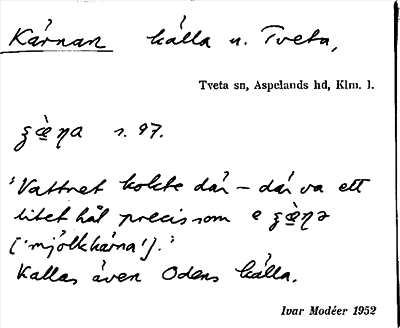 Kärnan källa n. Tveta,
Tveta sn, Aspelands hd, Klm. l.
ʒæ̀ꞃa s. 97.
'Vattnet kokte där – där va ett
litet hål precis som e ʒæ̀ꞃə
['mjölkkärna'].'
Kallas även Odens källa.
Ivar Modéer 1952